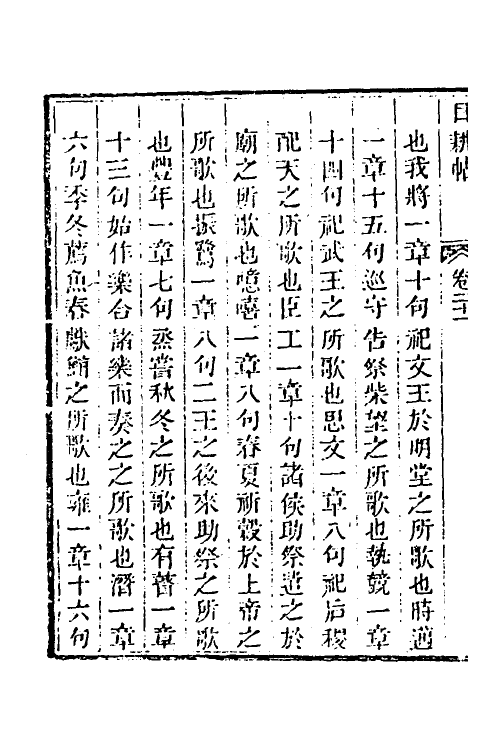 目耕帖 卷二十一
也我將一章十句祀文王於明堂之所歌也時邁
一章十五句巡守告祭柴望之所歌也執競一章
十四句祀武王之所歌也思文一章八句祀后稷
配天之所歌也臣工一章十句諸侯助祭遣之於
廟之所歌也噫嘻一章八句春夏祈穀於上帝之
所歌也振鷺一章八句二王之後來助祭之所歌
也豐年一章七句烝嘗秋冬之所歌也有瞽一章
十三句始作樂合諸樂而奏之之所歌也潛一章
六句季冬薦魚春獻鮪之所歌也雍一章十六句